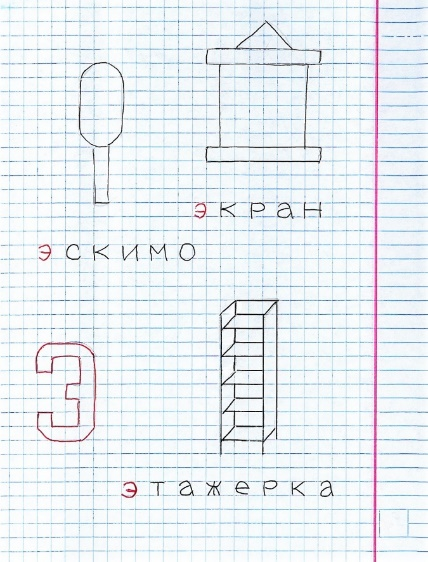 экран
эскимо
Э
этажерка